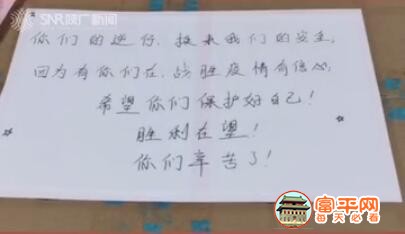 SNR陕广新闻
你们的逆行，换来我们的安全，
因为有你们在，战胜疫情有信心，
希望你们保护好自己！
胜利在望！
你们辛苦了！
富平网
每天必看